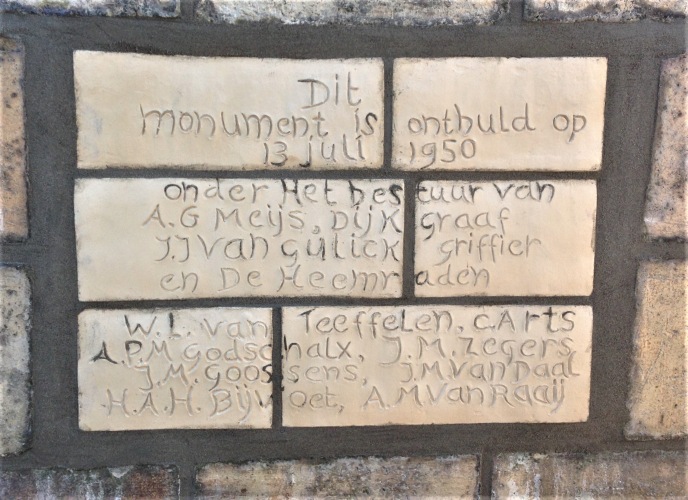 Dit
monument is onthuld op
13 juli 1950
onder Het bestuur van
A.G Meijs, Dijkgraaf
J.J van gülick griffier
en De Heemraden
W.L. van Teeffelen, C.Arts
A.P.M Godschalx, J.M.Zegers
J.M. Goossens, J.M Van Daal
H.A.H. Bijvoet, A.M Van Raaij